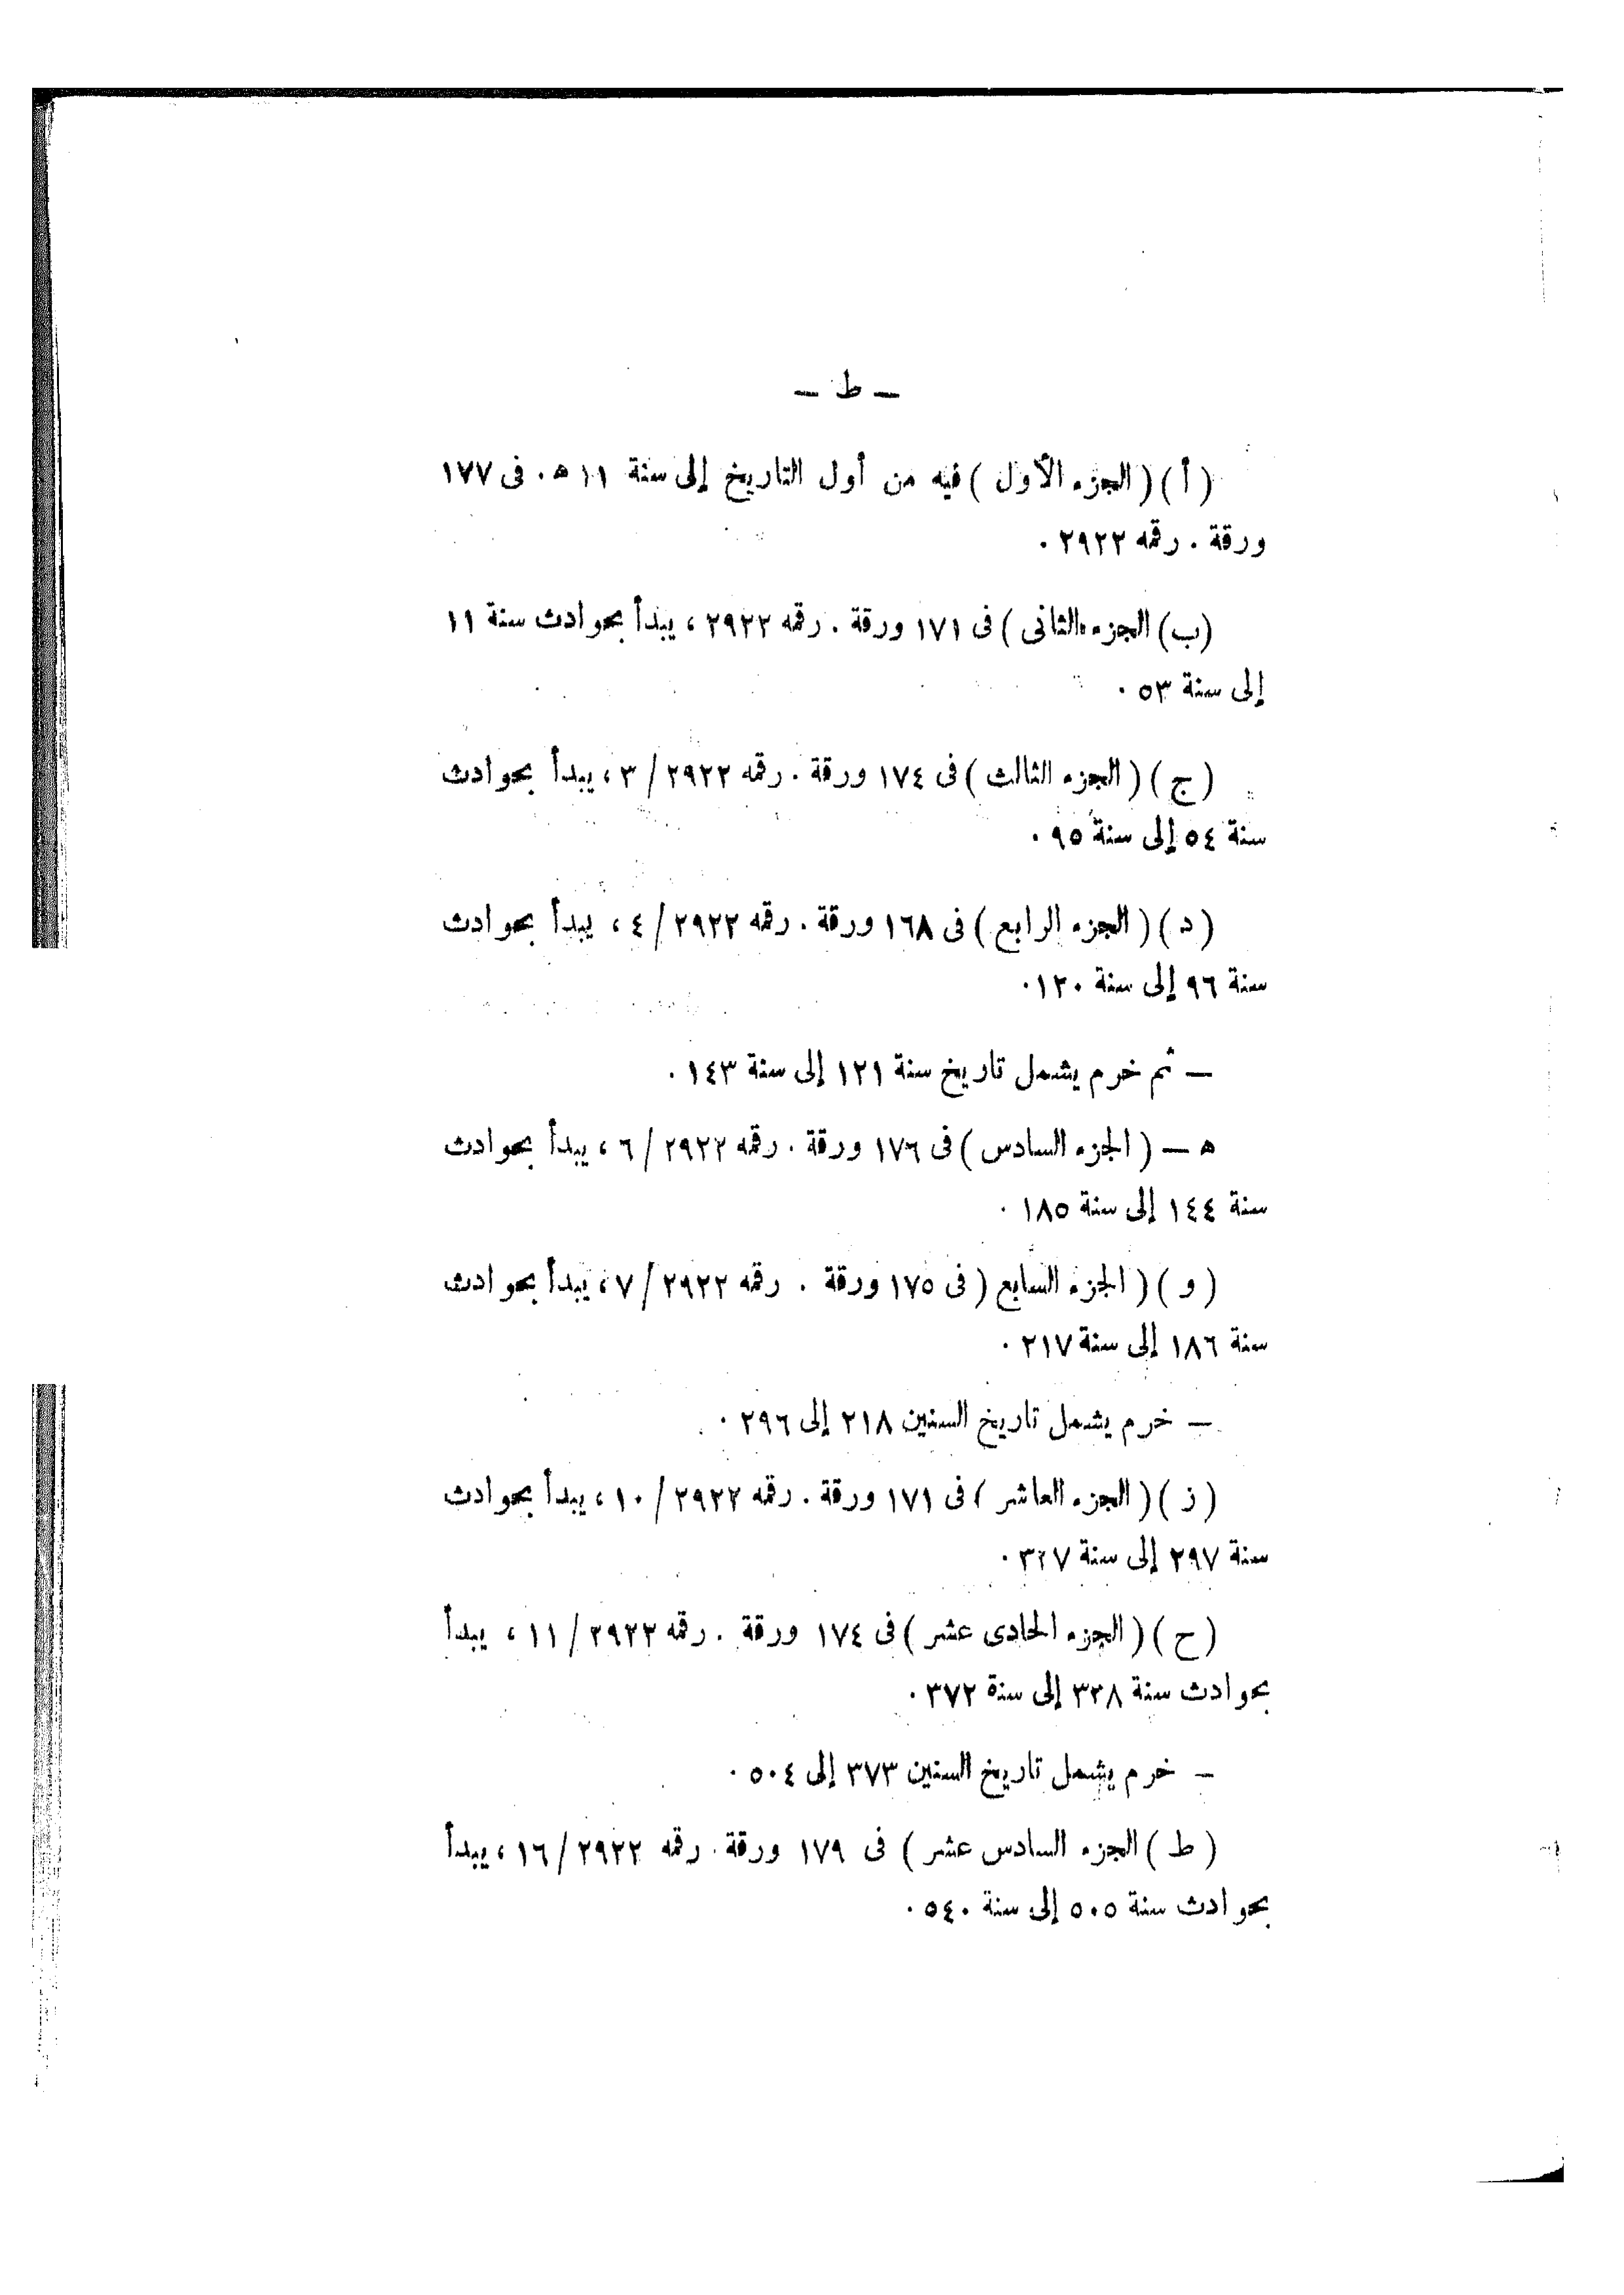 — ط —
( أ ) ( الجزء الأول ) فيه من أول التاريخ إلى سنة ١١ ه . فى ١٧٧
ورقة . رقمه ٢٩٢٢ .
(ب) الجزء الثانى ) فى ١٧١ ورقة . رقمه ٢٩٢٢ ، يبدأ بحوادث سنة ١١
إلى سنة ٥٣ .
( ج ) ( الجزء الثالث ) فى ١٧٤ ورقة . رقمه ٢٩٢٢ / ٣ ، يبدأ بحوادث
سنة ٥٤ إلى سنة ٩٥ .
( د ) ( الجزء الرابع ) فى ١٦٨ ورقة . رقمه ٢٩٢٢ / ٤ ، يبدأ بحوادث
سنة ٩٦ إلى سنة ١٢٠ .
— ثم خرم يشمل تاريخ سنة ١٢١ إلى سنة ١٤٣ .
ه — ( الجزء السادس ) فى ١٧٦ ورقة . رقمه ٢٩٢٢ / ٦ ، يبدأ بحوادث
سنة ١٤٤ إلى سنة ١٨٥ .
( و ) ( الجزء السابع ( فى ١٧٥ ورقة . رقمه ٢٩٢٢ / ٧ ، يبدأ بحوادث
سنة ١٨٦ إلى سنة ٢١٧ .
— خرم يشمل تاريخ السنين ٢١٨ إلى ٢٩٦ .
( ز ) ( الجزء العاشر ) فى ١٧١ ورقة . رقمه ٢٩٢٢ / ١٠ ، يبدأ بحوادث
سنة ٢٩٧ إلى سنة ٣٢٧ .
( ح ) ( الجزء الحادى عشر ) فى ١٧٤ ورقة . رقمه ٢٩٢٢ / ١١ ، يبدأ
بحوادث سنة ٣٢٨ إلى سنة ٣٧٢ .
— خرم يشمل تاريخ السنين ٣٧٣ إلى ٥٠٤ .
( ط ) الجزء السادس عشر ) فى ١٧٩ ورقة . رقمه ٢٩٢٢ / ١٦ ، يبدأ
بحوادث سنة ٥٠٥ إلى سنة ٥٤٠ .